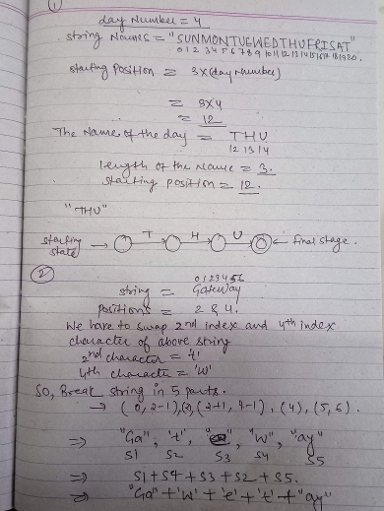 ①
day Number = 4
string Names = "SUNMONTUEWEDTHUFRISAT"
0 1 2 3 4 5 6 7 8 9 10 11 12 13 14 15 16 17 18 19 20.
starting Position = 3x(day number)
= 3x4
= 12
The Name of the day = THU
12 13 14
length of the Name = 3.
starting position = 12.
"THU"
starting state → T H U ← final stage.
②
0 1 2 3 4 5 6
string = Gateway
positions = 2 & 4.
We have to swap 2nd index and 4th index
character of above string
2nd character = 't'
4th character = 'W'
SO, Break string in 5 parts.
→ (0, 2-1), (2), (2+1, 4-1), (4), (5, 6).
⇒ "Ga", 't', "e", "W", "ay"
S1 S2 S3 S4 S5
⇒ S1 + S4 + S3 + S2 + S5.
⇒ "Ga" + 'W' + 'e' + 't' + "ay"